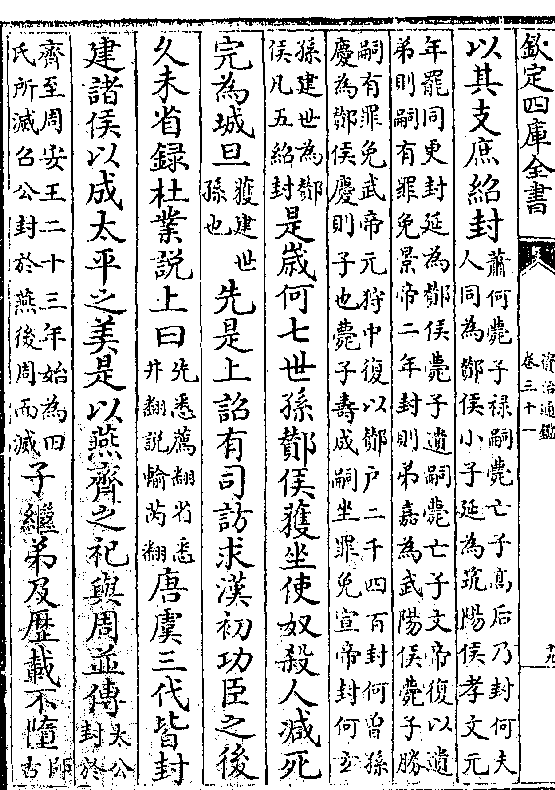 欽定四庫全書
資治通鑑
卷三十一
十九
以其支庶紹封蕭何薨子禄嗣薨亡子髙后乃封何夫人同為酇侯小子延為筑陽侯孝文元
年罷同更封延為酇侯薨子遺嗣薨亡子文帝復以遺弟則嗣有罪免景帝二年封則弟嘉為武陽侯薨子勝
嗣有罪免武帝元狩中復以酇户二千四百封何曽孫慶為酇侯慶則子也薨子壽成嗣坐罪免宣帝封何玄
孫建世為酇侯凡五紹封是歳何七世孫酇侯獲坐使奴殺人減死
完為城旦獲建世孫也先是上詔有司訪求漢初功臣之後
久未省録杜業説上曰先悉薦翻省悉井翻説輸芮翻唐虞三代皆封
建諸侯以成太平之美是以燕齊之祀與周並傳太公封於
齊至周安王二十三年始為田氏所滅召公封於燕後周而滅子繼弟及歴載不墮師古